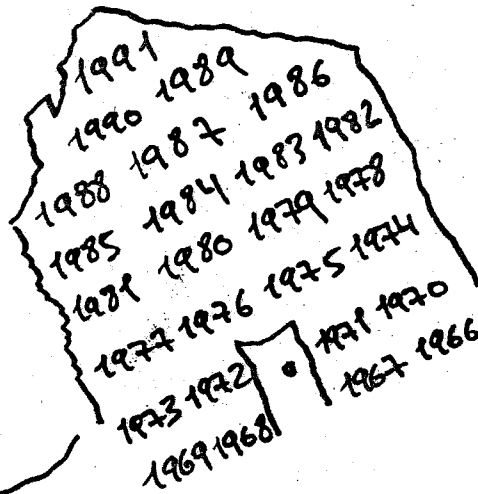 1991
1990 1989
1988 1987 1986
1985 1984 1983 1982
1981 1980 1979 1978
1977 1976 1975 1974
1973 1972 1971 1970
1969 1968 1967 1966